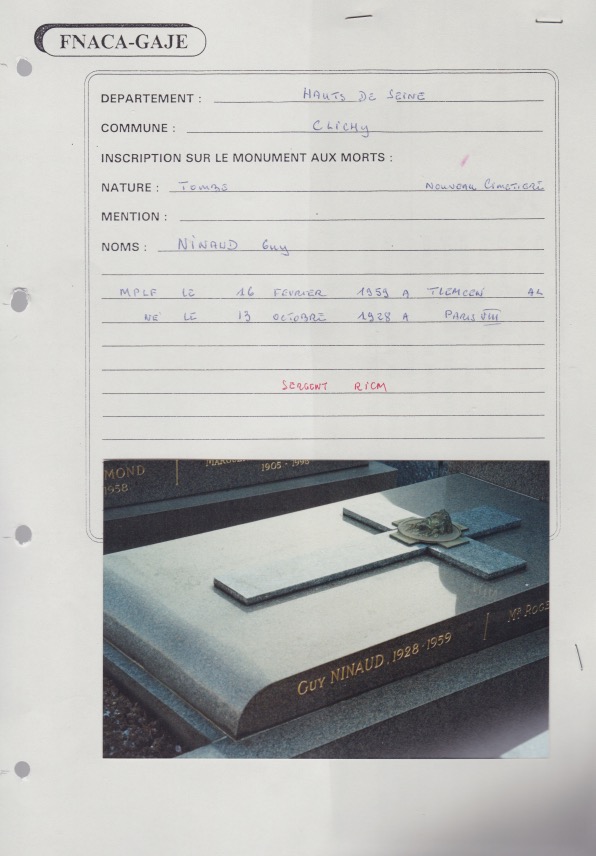 FNACA-GAJE
DEPARTEMENT : HAUTS DE SEINE
COMMUNE : CLICHY
INSCRIPTION SUR LE MONUMENT AUX MORTS :
NATURE : TOMBE NOUVEAU CIMETIERE
MENTION :
NOMS : NINAUD Guy
MPLF LE 16 FEVRIER 1959 A TLEMCEN AL
NE LE 13 OCTOBRE 1928 A PARIS VIII
SERGENT RICM
MOND
1958
1905 - 1998
GUY NINAUD . 1928 - 1959
MR ROGE